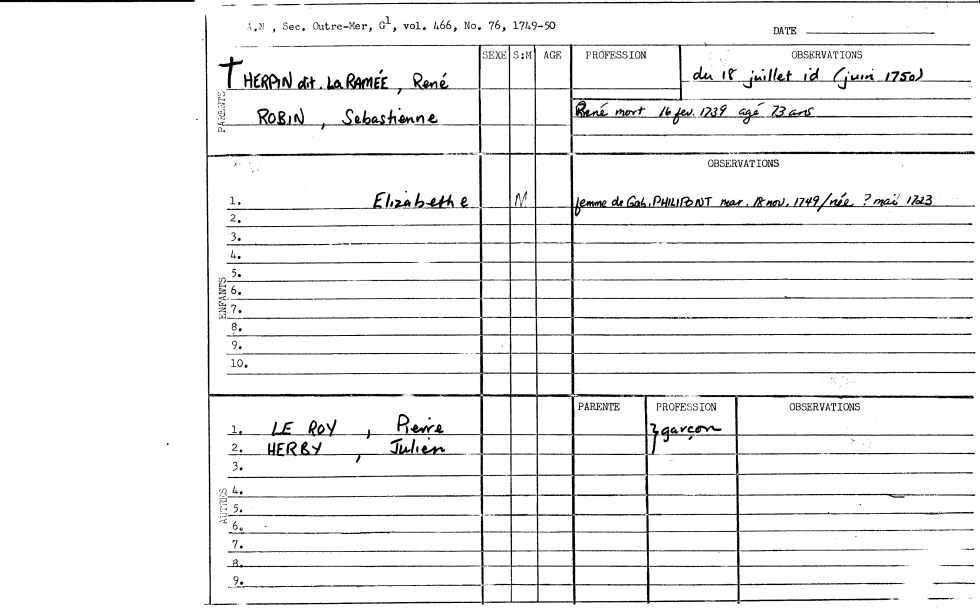 A.N , Sec. Outre-Mer, G1, vol. 466, No. 76, 1749-50
DATE
SEXE S:M AGE PROFESSION OBSERVATIONS
† HERPIN dit. La RAMÉE , René du 18 juillet id (juin 1750)
ROBIN , Sebastienne René mort 16 fev. 1739 agé 73 ans
PARENTS
OBSERVATIONS
1. Elizabethe M femme de Gab. PHILIPONT mar. 18 nov. 1749/née ? mai 1723
2.
3.
4.
5.
6.
7.
8.
9.
10.
ENFANTS
PARENTE PROFESSION OBSERVATIONS
1. LE ROY , Pierre } garçon
2. HERBY , Julien
3.
4.
5.
6.
7.
8.
9.
AUTRES